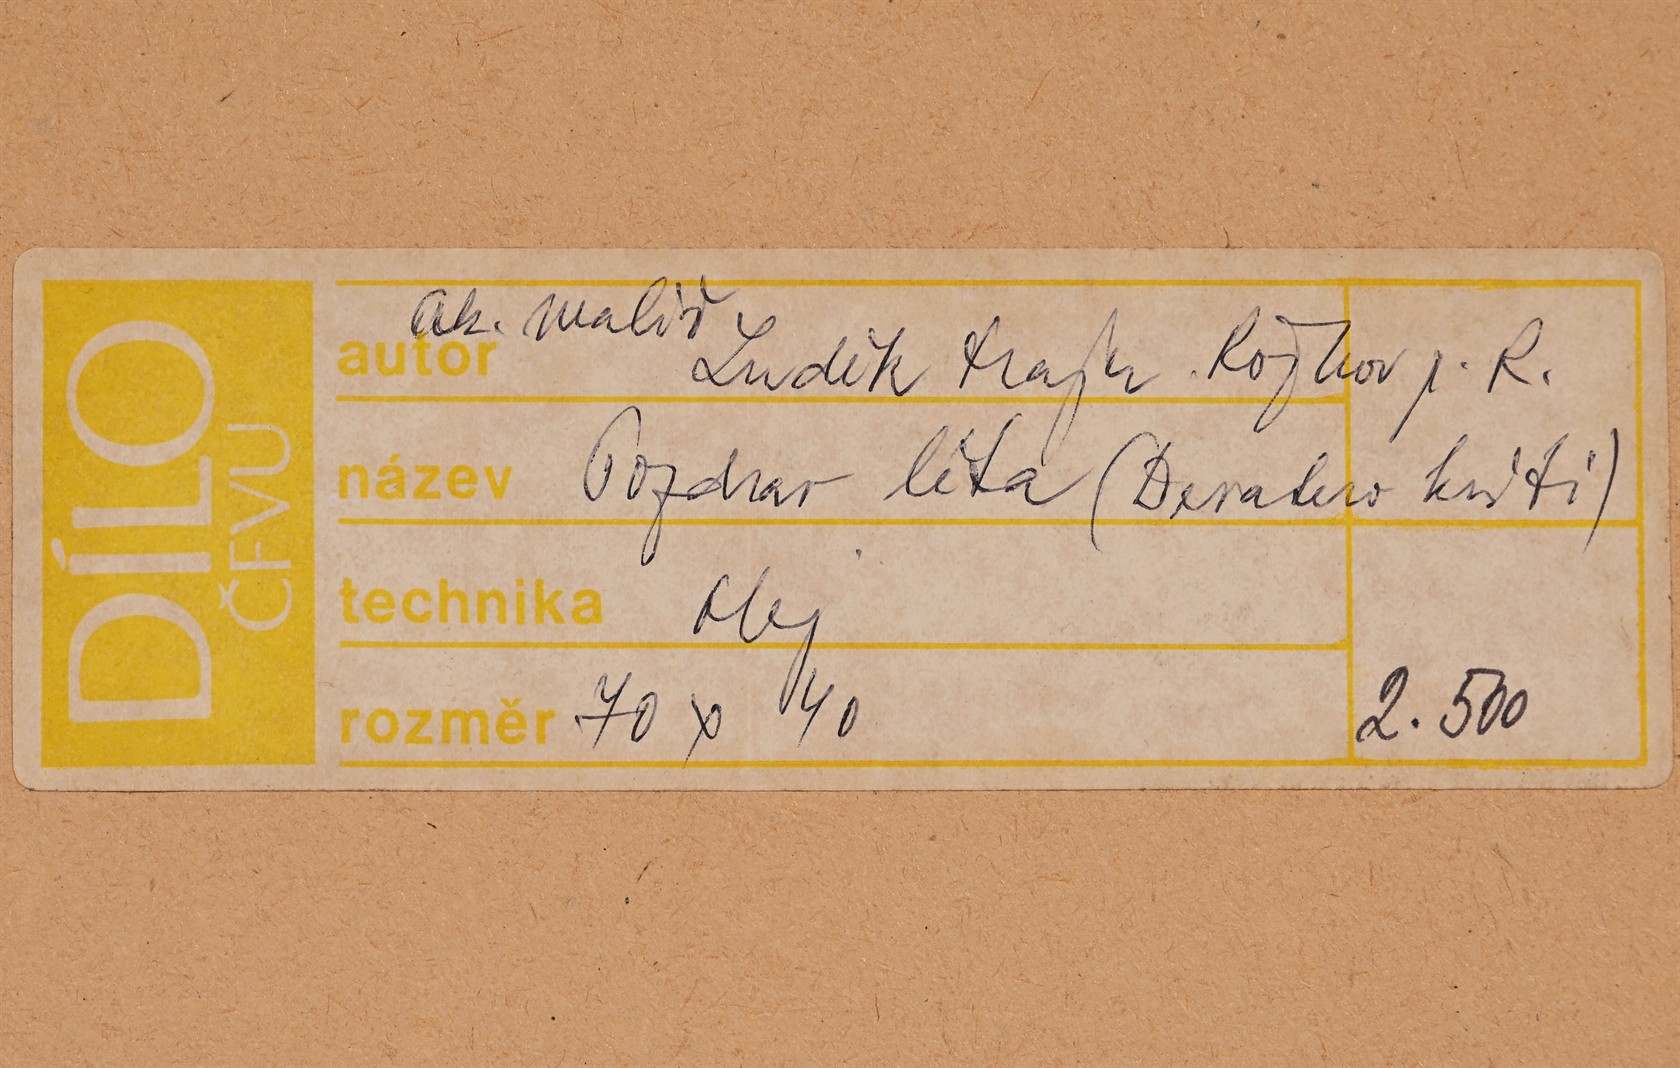 DÍLO
ČFVU
ak. malíř
autor Luděk Krajč. Rožnov p. R.
název Pozdrav léta (Devatero kvítí)
technika Olej
rozměr 70 x 40 2.500